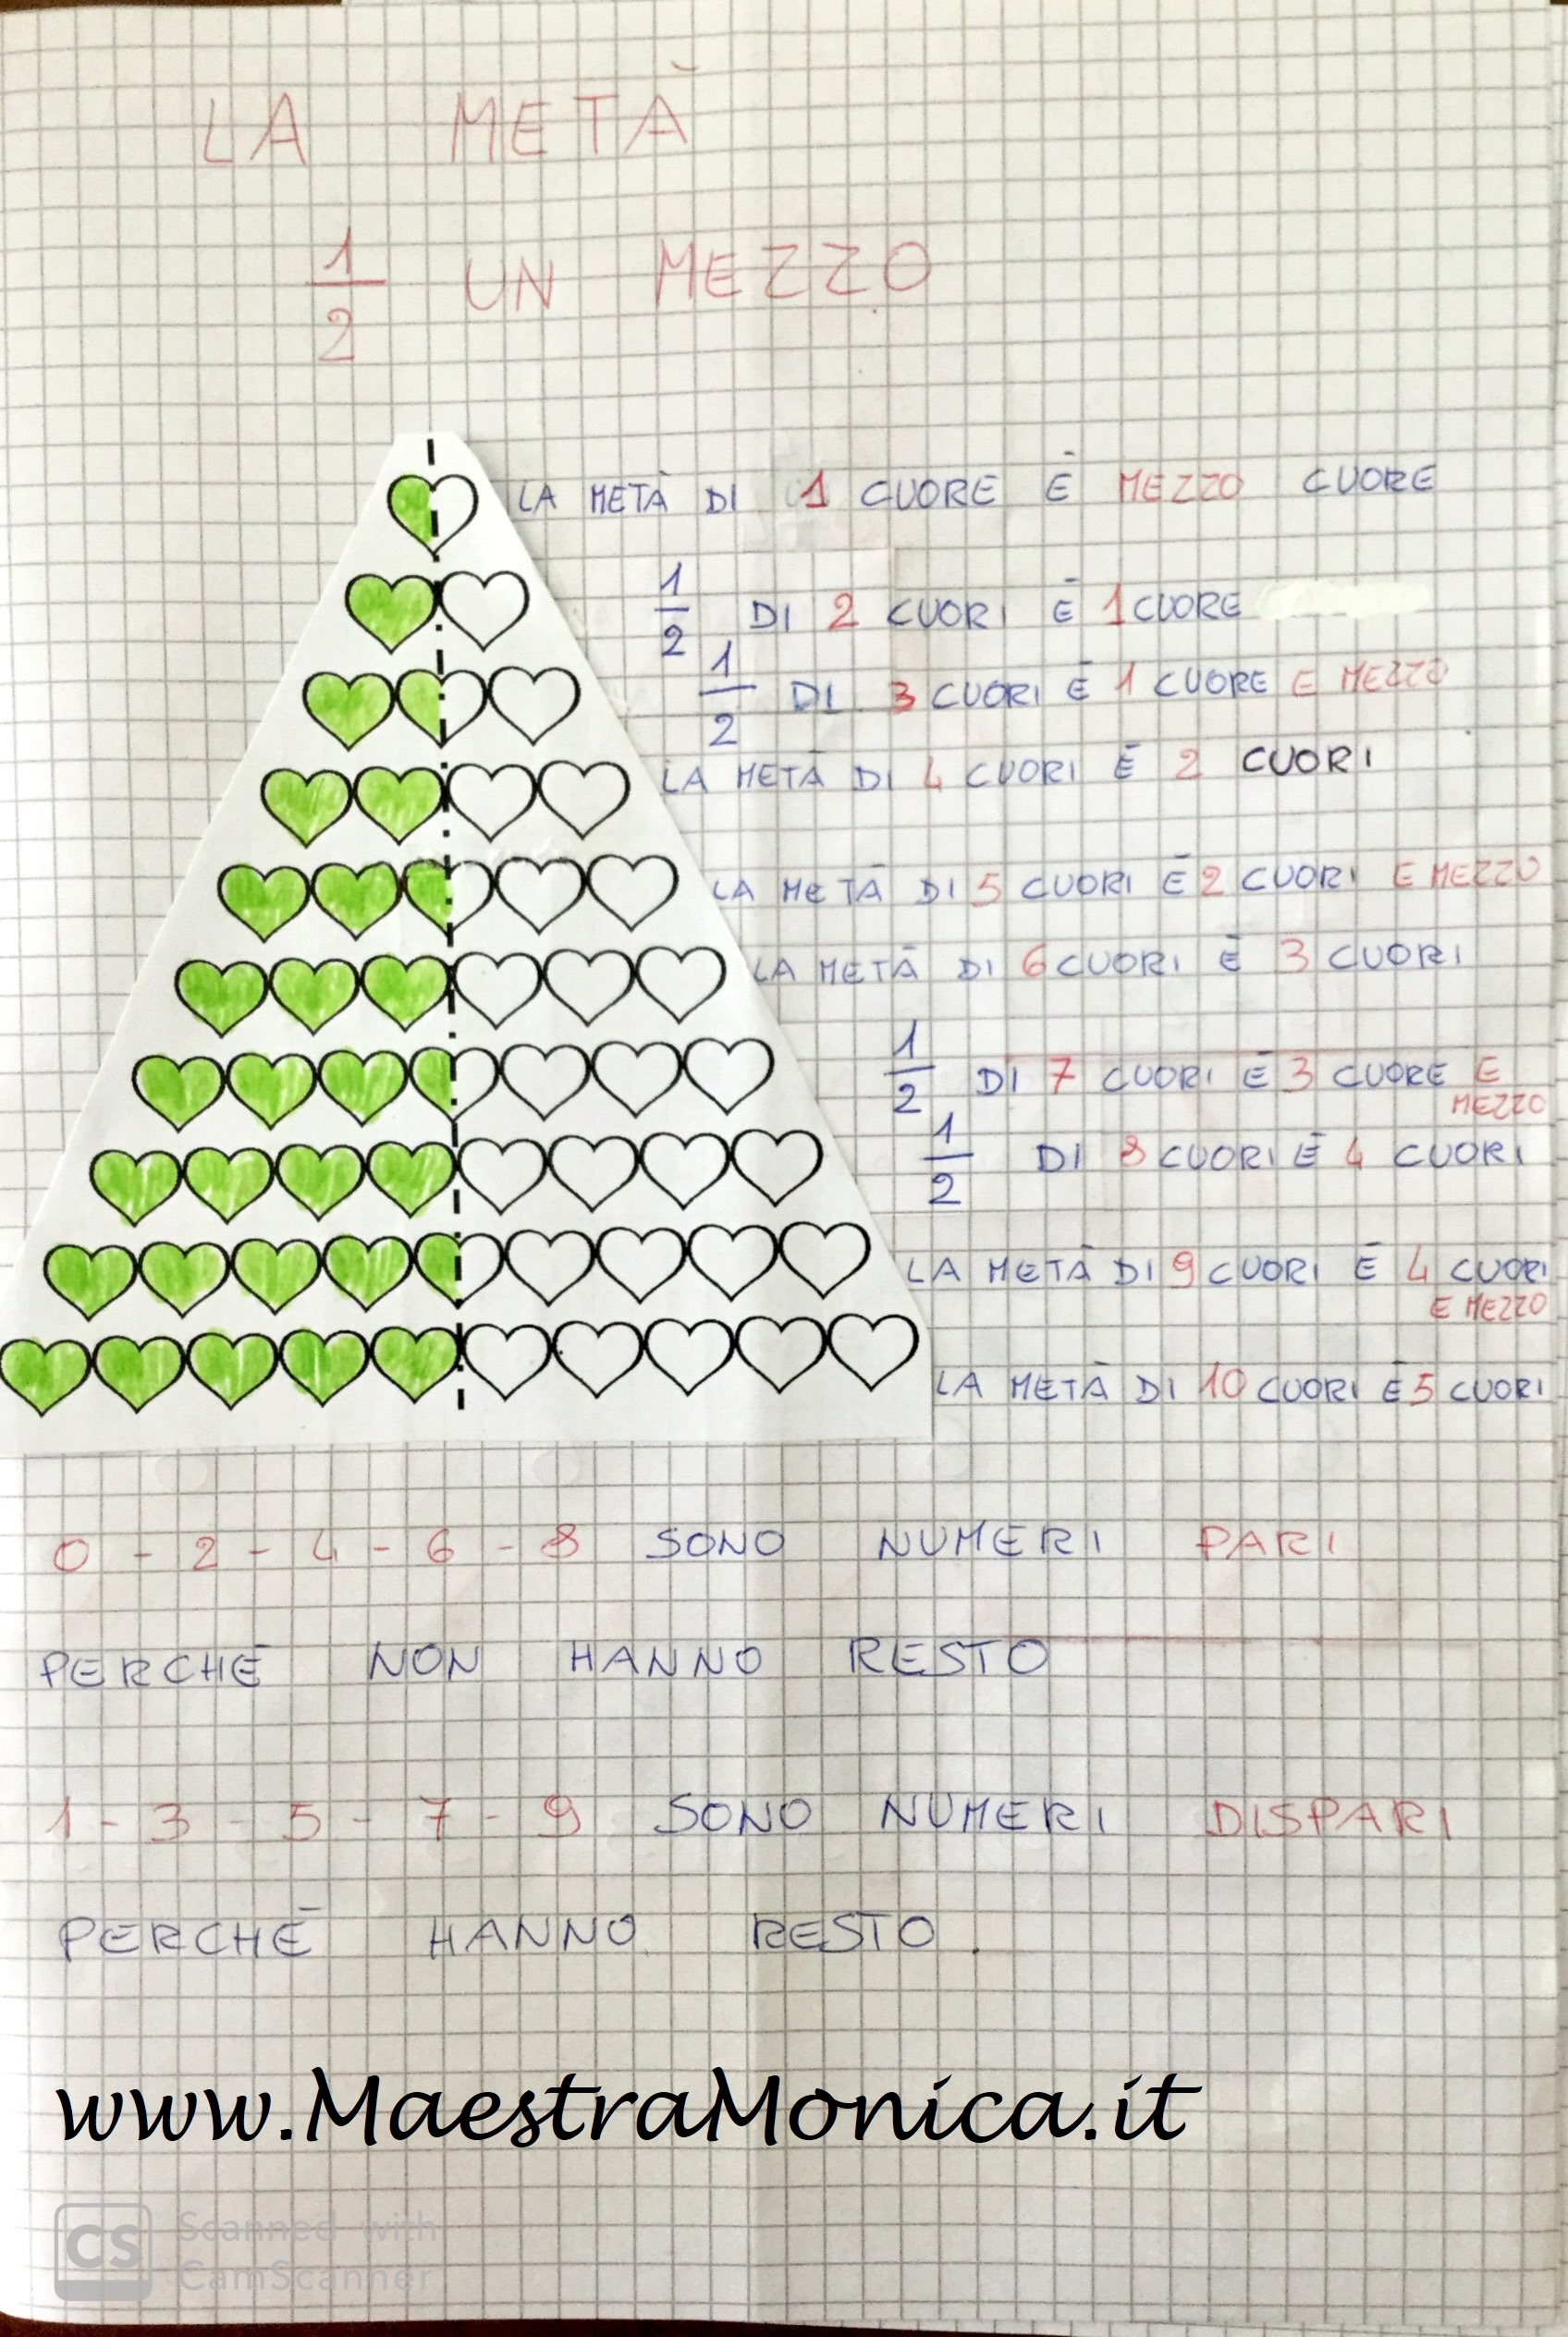 LA METÀ
1/2 UN MEZZO
LA METÀ DI 1 CUORE È MEZZO CUORE
1/2 DI 2 CUORI È 1 CUORE
1/2 DI 3 CUORI È 1 CUORE E MEZZO
LA METÀ DI 4 CUORI È 2 CUORI
LA METÀ DI 5 CUORI È 2 CUORI E MEZZO
LA METÀ DI 6 CUORI È 3 CUORI
1/2 DI 7 CUORI È 3 CUORE E
MEZZO
1/2 DI 8 CUORI È 4 CUORI
LA METÀ DI 9 CUORI È 4 CUORI
E MEZZO
LA METÀ DI 10 CUORI È 5 CUORI
0 - 2 - 4 - 6 - 8 SONO NUMERI PARI
PERCHÉ NON HANNO RESTO
1 - 3 - 5 - 7 - 9 SONO NUMERI DISPARI
PERCHÉ HANNO RESTO.
www.MaestraMonica.it
CS Scanned with
CamScanner